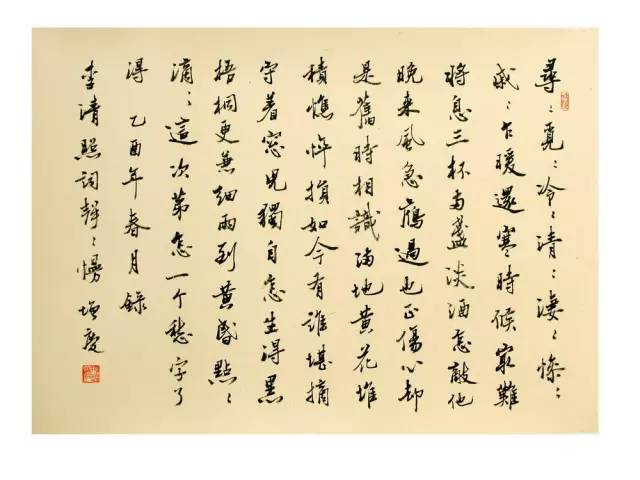 尋〻覓〻冷〻清〻淒〻慘〻
戚〻乍暖還寒時候冣難
將息三杯兩盞淡酒怎敵他
晚来風急鴈過也正傷心却
是舊時相識滿地黄花堆
積憔悴損如今有誰堪摘
守着窓兒獨自怎生得黑
梧桐更兼細雨到黄昏點〻
滴〻這次第怎一个愁字了
得 乙酉年春月錄
李清照詞聲〻慢 慶